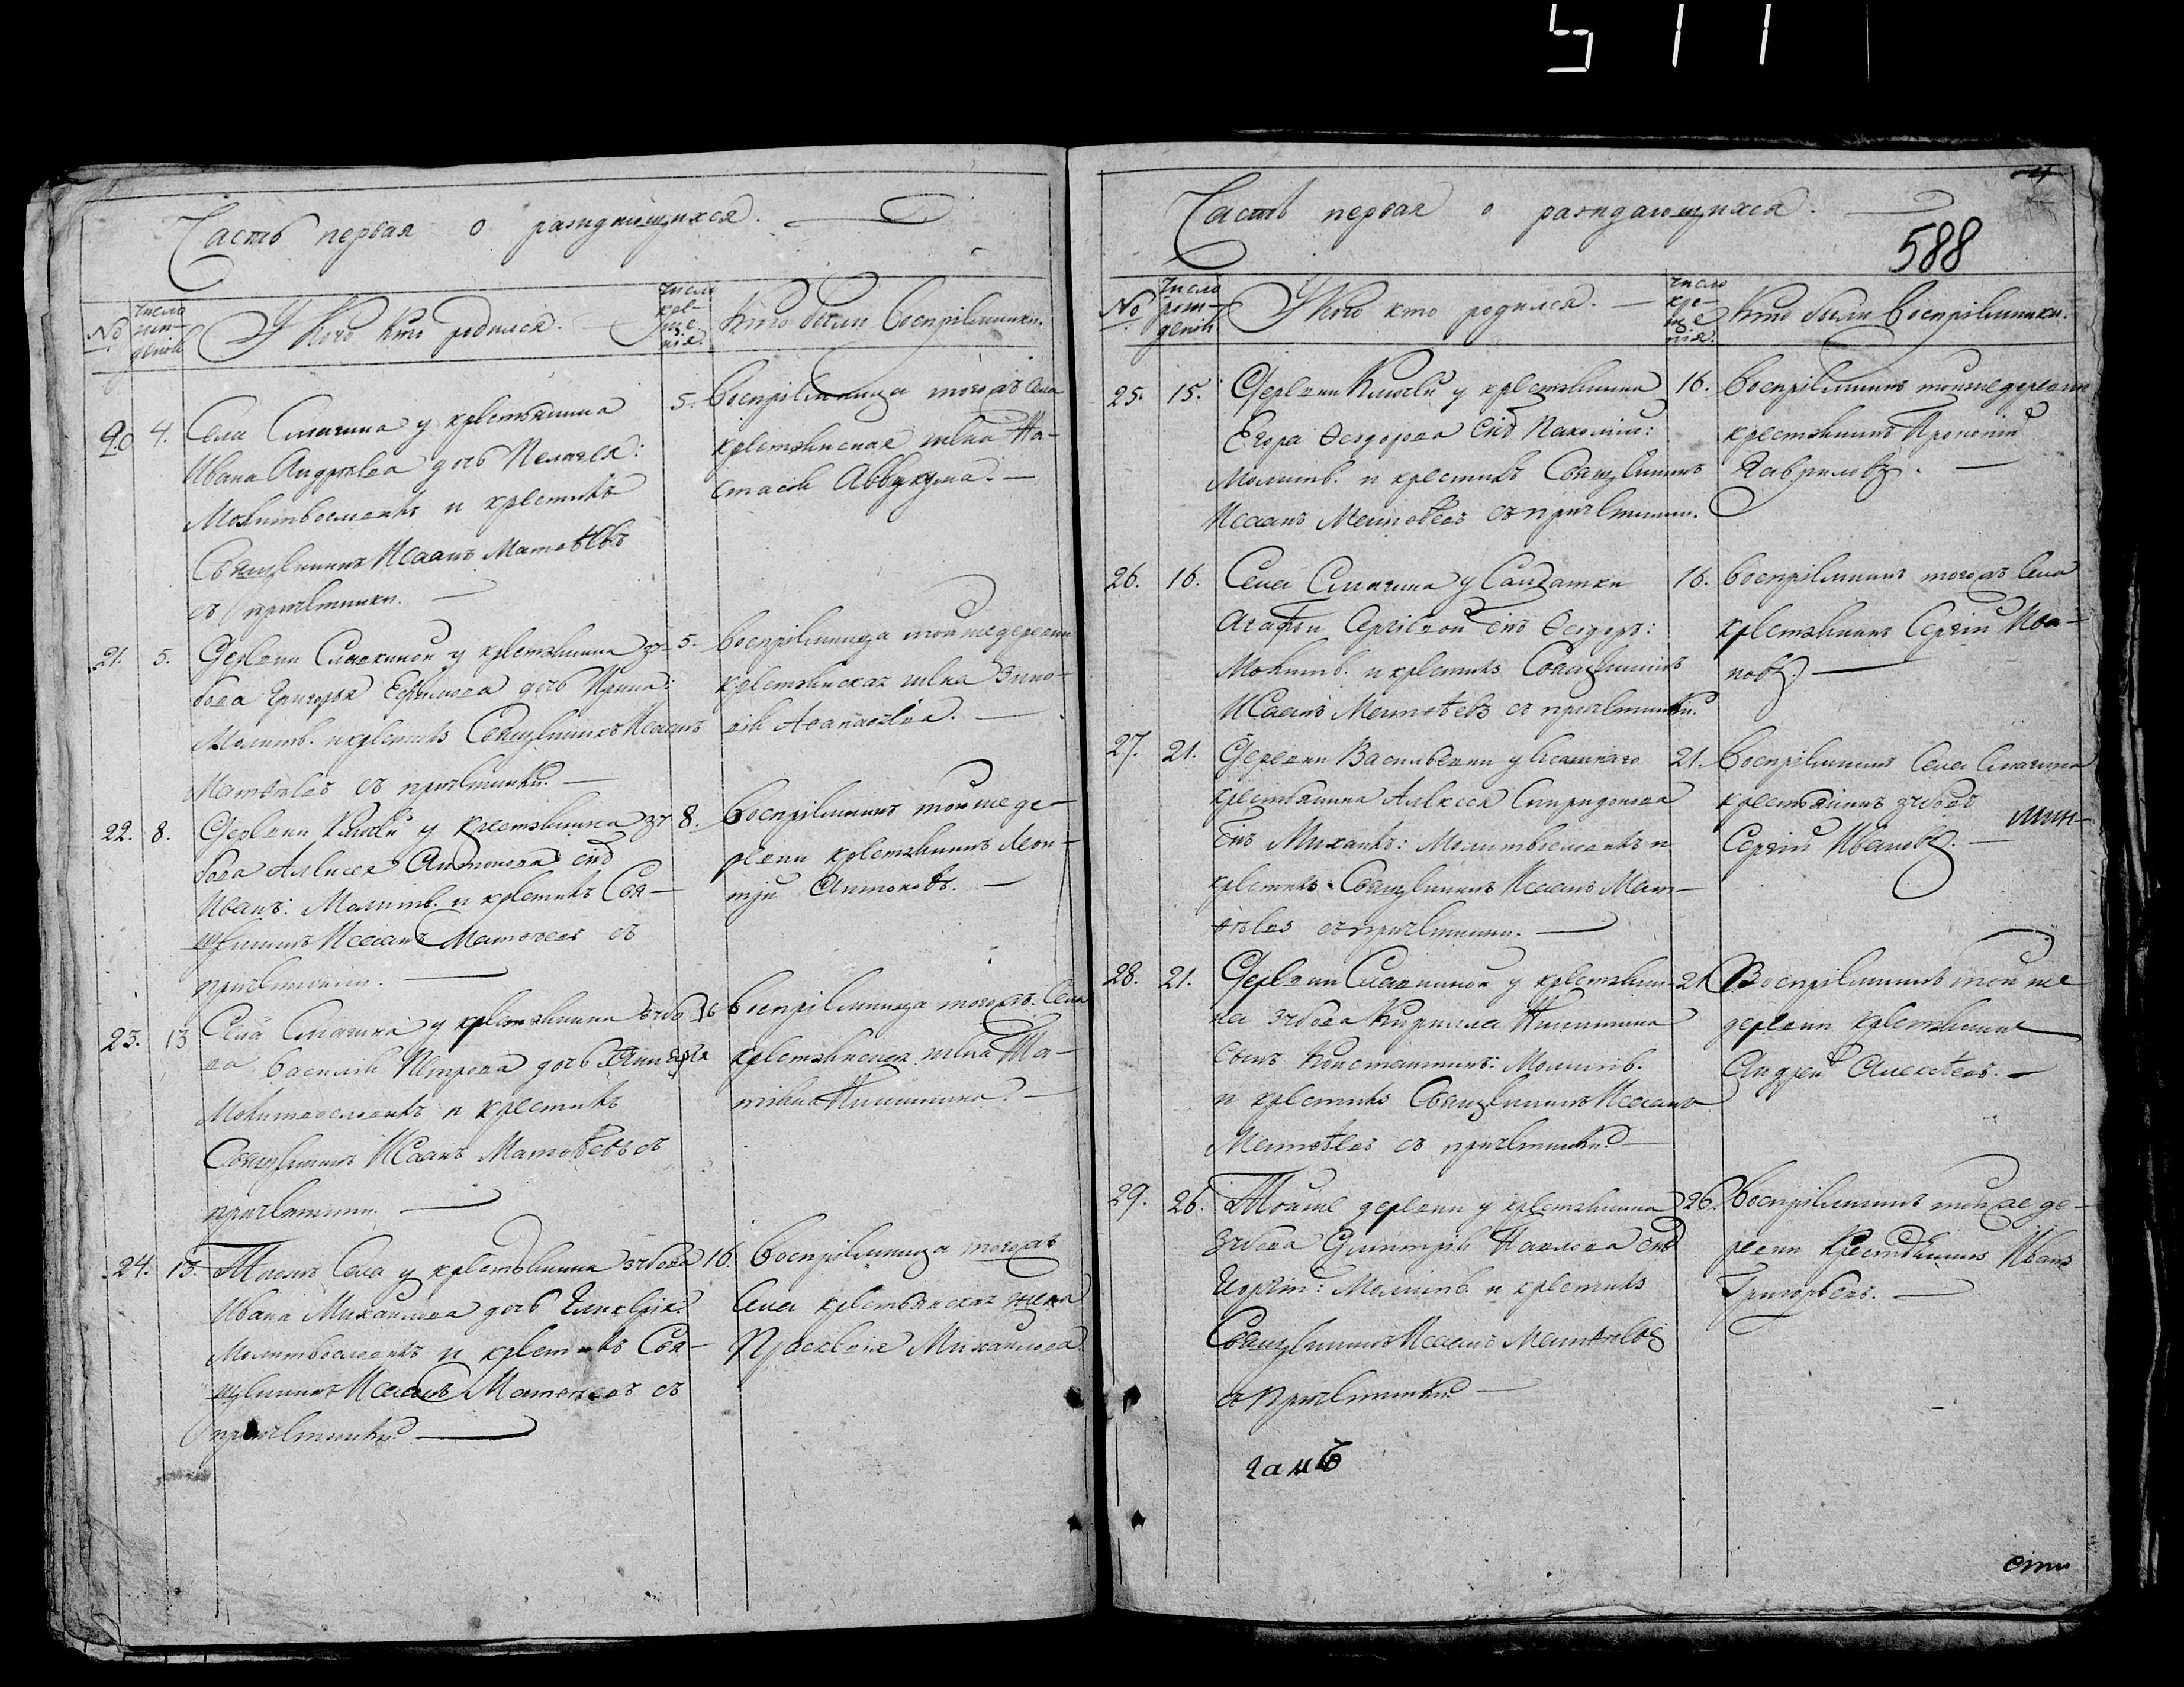 511
Часть первая о раждающихся.
№
число
рож-
денія
У Кого кто родился.
число
кре-
ще-
нія.
Кто были Воспріемники.
20
4.
Села Смагина у крестьянина
Ивана Андрѣева дочь Пелагея:
Молитвословилъ и крестилъ
Священникъ Исаакъ Матвѣевъ
съ причетники.
5.
Воспріемница тогожъ села
крестьянская жена На-
стасія Аввакума.
21.
5.
Деревни у крестьянина зт-
бова Григорья Ефимова дочь Ирина:
Молитв. и крестилъ Священникъ Исаакъ
Матвѣевъ съ причетники.
5.
Воспріемница тойже деревни
крестьянская жена Зино-
вія Аѳанасьева.
22.
8.
Деревни Ключей у крестьянина зт
бова Алексея Антонова снъ
Иванъ: Молитв. и крестилъ Свя-
щенникъ Исаакъ Матвѣевъ съ
причетники.
8.
Воспріемникъ тойже де-
ревни крестьянинъ Леон-
тій Антоновъ.
23.
13
Села Смагина у крестьянина зтбо
ва Василія Петрова дочь
Молитвословилъ и крестилъ
Священникъ Исаакъ Матвѣевъ съ
причетники.
16
Воспріемница тогожъ Села
крестьянская жена Та-
тіяна Никитина.
24.
15.
Тогожъ Села у крестьянина зтбова
Ивана Михайлова дочь Гликерія:
Молитвословилъ и крестилъ Свя-
щенникъ Исаакъ Матвѣевъ съ
причетники.
16.
Воспріемница тогожъ
Села крестьянская жена
Прасковья Михайлова.
Часть первая о раждающихся.
588
№
число
рож-
денія
У Кого кто родился.
число
кре-
ще-
нія.
Кто были Воспріемники.
25.
15.
Деревни Ключей у крестьянина
Егора Ѳеодорова снъ Пахомій:
Молитв. и крестилъ Священникъ
Исаакъ Матвѣевъ съ причетники.
16.
Воспріемникъ тойже деревни
крестьянинъ Прокопій
Гавриловъ.
26.
16.
Села Смагина у Салдатки
Агафьи Сергіевой снъ Ѳеодоръ:
Молитв. и крестилъ Священникъ
Исаакъ Матвѣевъ съ причетники.
16.
Воспріемникъ тогожъ Села
крестьянинъ Сергій Ива-
новъ.
27.
21.
Деревни Васильевки у
крестьянина Алексея Спиридонова
снъ Михаилъ: Молитвословилъ и
крестилъ Священникъ Исаакъ Мат-
вѣевъ съ причетники.
21.
Воспріемникъ Села Смагина
крестьянинъ зтбовъ
Сергій Ивановъ.
28.
21.
Деревни у крестьяни-
на зтбова Кирилла Никитина
сынъ Константинъ: Молитв.
и крестилъ Священникъ Исаакъ
Матвѣевъ съ причетники.
21
Воспріемникъ тойже
деревни крестьянинъ
Андрей Алексѣевъ.
29.
26.
Тойже деревни у крестьянина
зтбова Димитрія Павлова снъ
Георгій: Молитв. и крестилъ
Священникъ Исаакъ Матвѣевъ
съ причетники.
26.
Воспріемникъ тойже де-
ревни крестьянинъ Иванъ
Григорьевъ.